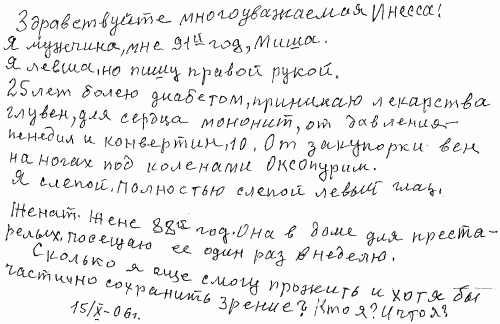 Здравствуйте многоуважаемая Инесса!
Я мужчина, мне 91й год, Миша.
Я левша, но пишу правой рукой.
25 лет болею диабетом, принимаю лекарства
глувен, для сердца мононит, от давления-
пенедил и конвертин, 10. От закупорки вен
на ногах под коленами Оксопурим.
Я слепой. Полностью слепой левый глаз.
Женат. Жене 88й год. Она в доме для преста-
релых, посещаю ее один раз в неделю.
Сколько я еще смогу прожить и хотя бы
частично сохранить зрение? Кто я? И что я?
15/X-06г.